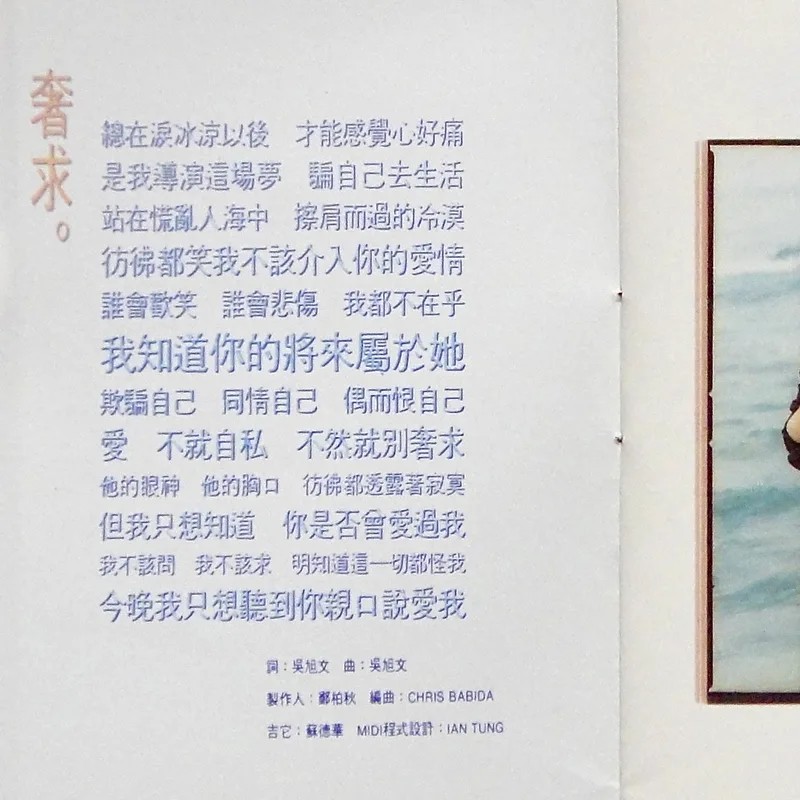 奢求。
總在淚冰涼以後　才能感覺心好痛
是我導演這場夢　騙自己去生活
站在慌亂人海中　擦肩而過的冷漠
彷彿都笑我不該介入你的愛情
誰會歡笑　誰會悲傷　我都不在乎
我知道你的將來屬於她
欺騙自己　同情自己　偶而恨自己
愛　不就自私　不然就別奢求
他的眼神　他的胸口　彷彿都透露著寂寞
但我只想知道　你是否曾愛過我
我不該問　我不該求　明知道這一切都怪我
今晚我只想聽到你親口說愛我
詞：吳旭文　曲：吳旭文
製作人：鄭柏秋　編曲：CHRIS BABIDA
吉它：蘇德華　MIDI程式設計：IAN TUNG